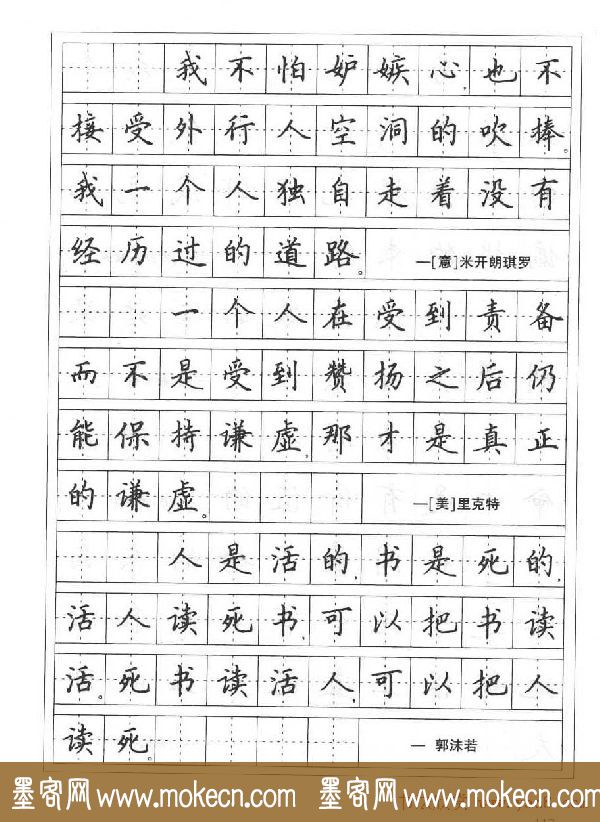 我不怕妒嫉心,也不
接受外行人空洞的吹捧。
我一个人独自走着没有
经历过的道路。 —[意]米开朗琪罗
一个人在受到责备
而不是受到赞扬之后仍
能保持谦虚。那才是真正
的谦虚。 —[美]里克特
人是活的,书是死的,
活人读死书,可以把书读
活。死书读活人,可以把人
读死。 — 郭沫若
墨客网 www.mokecn.com 墨客网 www.mokecn.com